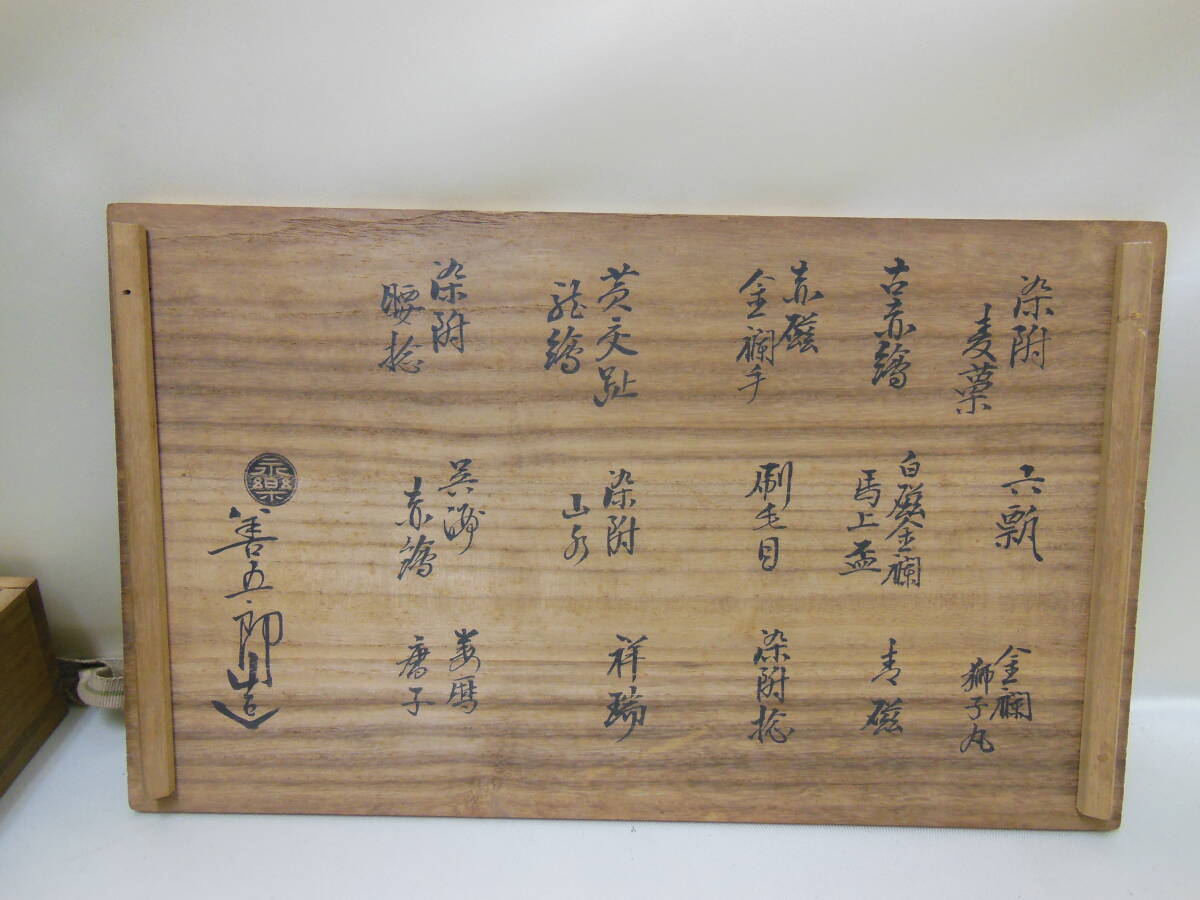 染附
麦藁
古赤繪
赤磁
金襴手
黄交趾
龍繪
染附
腰捻
六瓢
白磁金襴
馬上盃
刷毛目
染附
山水
呉洲
赤繪
金襴
獅子丸
青磁
染附捻
祥瑞
万暦
唐子
永樂
善五郎造